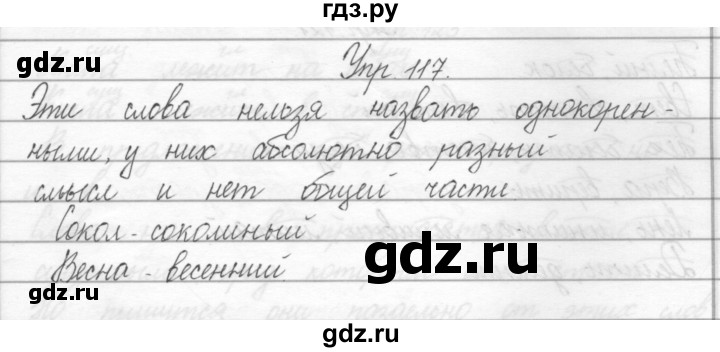 гдз.ру
gdz.ru
gdz.ru
Упр. 117.
Эти слова нельзя назвать однокорен-
ными, у них абсолютно разный
смысл и нет общей части.
Сокол - соколиный
Весна - весенний.
gdz.ru
gdz.ru
gdz.ru